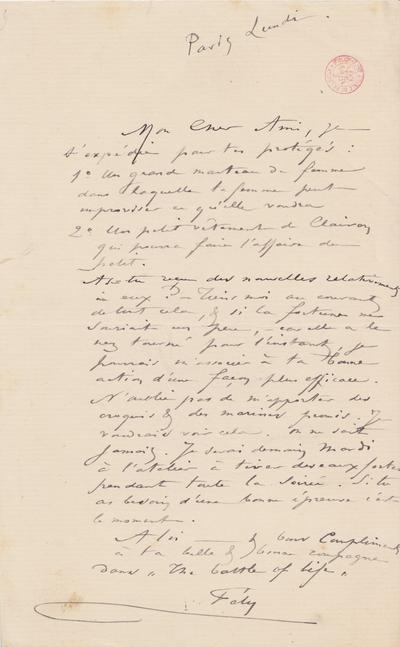 Paris Lundi.
Mon Cher Ami, je
t'expédie pour tes protégés :
1° Un grand manteau de femme
dans laquelle ta femme peut
improviser ce qu'elle voudra
2° Un petit vêtement de Clairon
qui pourra faire l'affaire du
petit.
As-tu reçu des nouvelles relativement
à eux ? – Tiens moi au courant
de tout cela, & si la fortune me
souriait un peu, – car elle a le
nez tourné pour l'instant, je
pourrais m'associer à ta bonne
action d'une façon plus efficace.
N'oublie pas de m'apporter des
croquis & des marines promis. Je
voudrais voir cela. On ne sait
jamais. Je serai demain Mardi
à l'atelier à tirer des eaux fortes
pendant toute la soirée. Si tu
as besoin d'une bonne épreuve c'est
le moment.
A toi — & bons Compliments
à ta belle & bonne compagne
dans „ The battle of life „
Fély